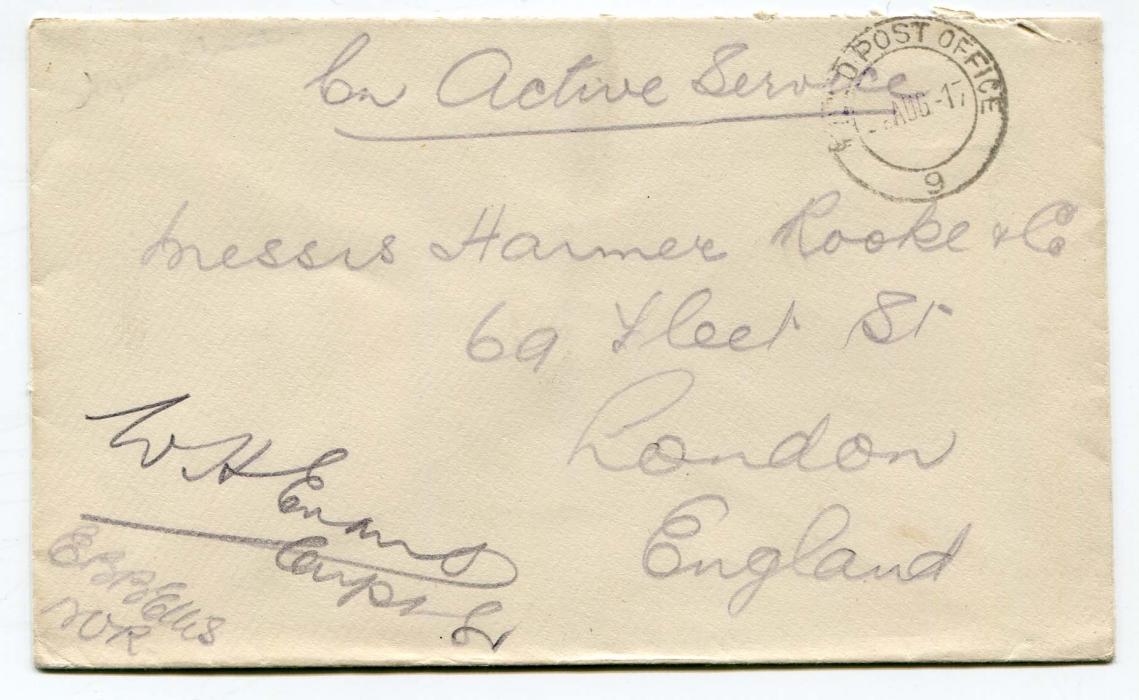 On Active Service
FIELD POST OFFICE
AUG-17
9
Messrs Harmer Rooke & Co
69 Fleet St
London
England
W H Evans
Capt
E B B Ellis